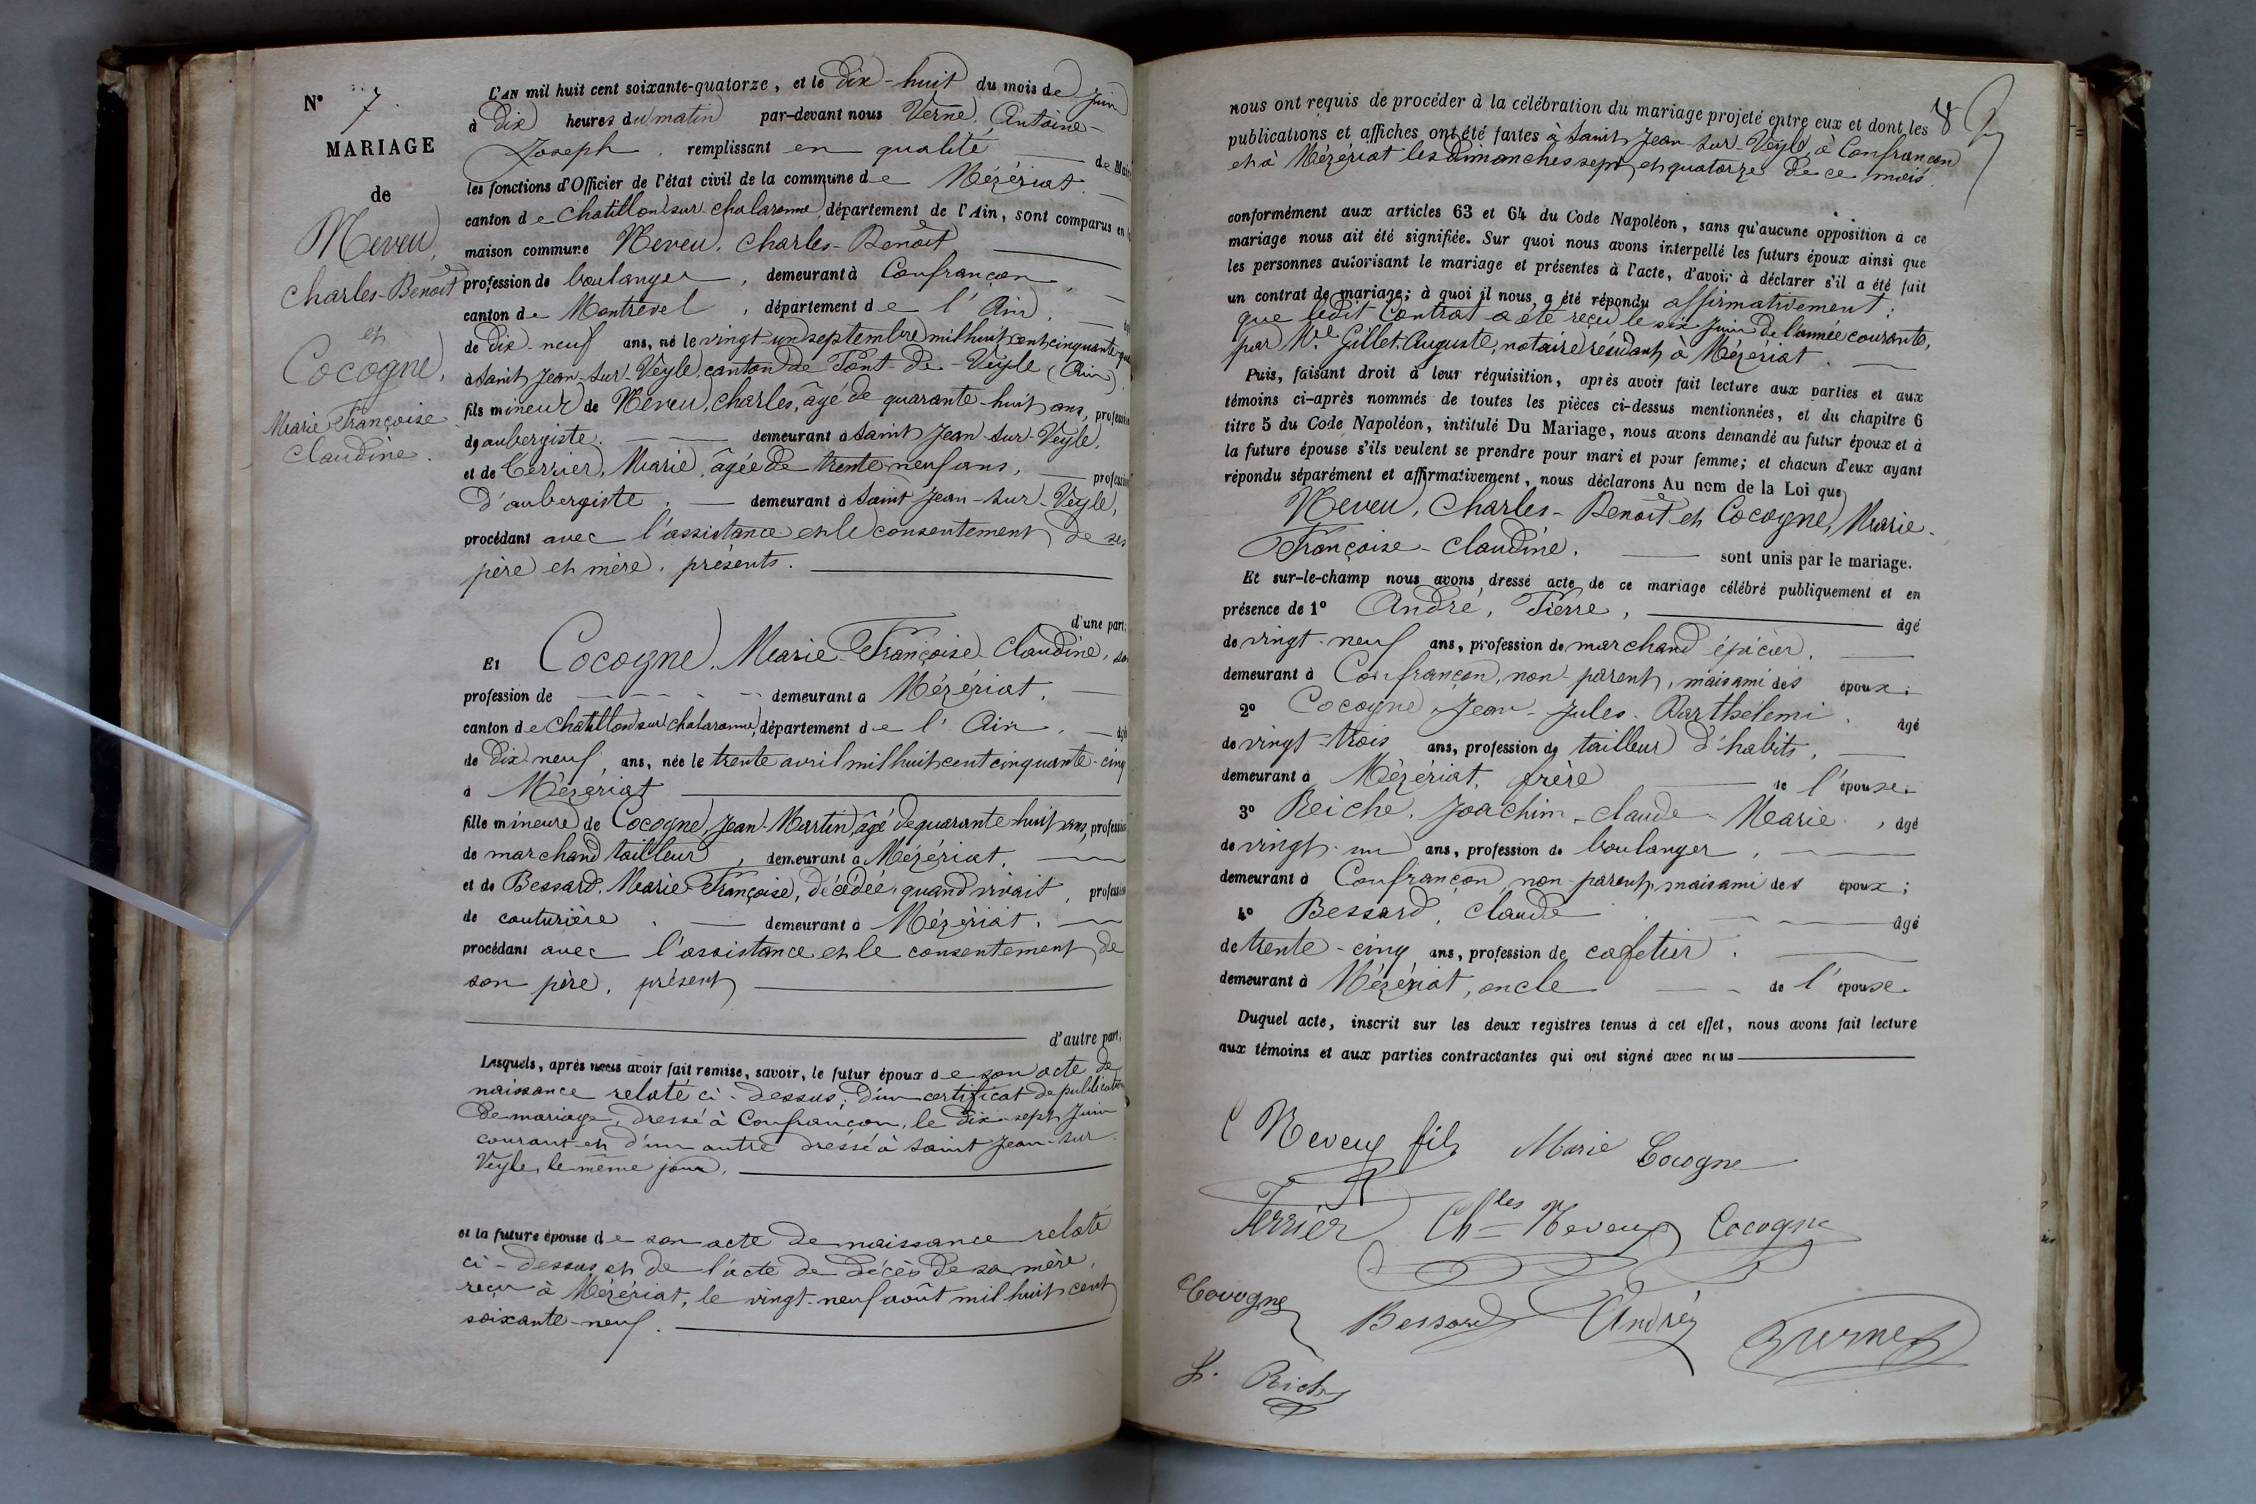 N° 7.
MARIAGE
de
Neveu,
Charles-Benoît
et
Cocogne,
Marie Françoise
Claudine.
L'AN mil huit cent soixante-quatorze, et le dix-huit du mois de Juin
à dix heures du matin par-devant nous Verne, Antoine-
Joseph, remplissant en qualité de Maire
les fonctions d'Officier de l'état civil de la commune de Mézériat.
canton de Chatillon sur chalaronne, département de l'Ain, sont comparus en
maison commune Neveu, Charles-Benoît
profession de boulanger, demeurant à Confrançon,
canton de Montrevel, département de l'Ain,
de dix-neuf ans, né le vingt un septembre mil huit cent cinquante
à Saint Jean-sur-Veyle, canton de Pont-de-Veyle (Ain)
fils mineur de Neveu, Charles, âgé de quarante-huit ans, profession
d'aubergiste. demeurant à Saint Jean sur-Veyle,
et de Terrier, Marie, âgée de trente-neuf ans, profession
d'aubergiste. demeurant à Saint Jean-sur-Veyle,
procédant avec l'assistance et le consentement de ses
père et mère, présents.
d'une part;
Et Cocogne, Marie-Françoise-Claudine, san
profession de demeurant à Mézériat.
canton de Chatillon sur chalaronne, département de l'Ain. âgée
de dix-neuf ans, née le trente avril mil huit cent cinquante-cinq
à Mézériat
fille mineure de Cocogne, Jean-Martin, âgé de quarante huit ans, profession
de marchand tailleur, demeurant à Mézériat.
et de Bessard, Marie Françoise, décédée, quand vivait, profession
de couturière. demeurant à Mézériat.
procédant avec l'assistance et le consentement de
son père, présent
d'autre part;
Lesquels, après nous avoir fait remise, savoir, le futur époux de son acte de
naissance relaté ci-dessus; d'un certificat de publication
de mariage, dressé à Confrançon, le dix-sept Juin
courant et d'un autre dressé à Saint Jean-sur
Veyle, le même jour.
et la future épouse de son acte de naissance relaté
ci-dessus et de l'acte de décès de sa mère,
reçu à Mézériat, le vingt-neuf août mil huit cent
soixante-neuf.
8
nous ont requis de procéder à la célébration du mariage projeté entre eux et dont les
publications et affiches ont été faites à Saint Jean-sur-Veyle, à Confrançon
et à Mézériat les dimanches sept et quatorze de ce mois.
conformément aux articles 63 et 64 du Code Napoléon, sans qu'aucune opposition à ce
mariage nous ait été signifiée. Sur quoi nous avons interpellé les futurs époux ainsi que
les personnes autorisant le mariage et présentes à l'acte, d'avoir à déclarer s'il a été fait
un contrat de mariage; à quoi il nous a été répondu affirmativement;
que ledit Contrat a été reçu le six Juin de l'année courante,
par Me Gillet, Auguste, notaire résidant à Mézériat.
Puis, faisant droit à leur réquisition, après avoir fait lecture aux parties et aux
témoins ci-après nommés de toutes les pièces ci-dessus mentionnées, et du chapitre 6
titre 5 du Code Napoléon, intitulé Du Mariage, nous avons demandé au futur époux et à
la future épouse s'ils veulent se prendre pour mari et pour femme; et chacun d'eux ayant
répondu séparément et affirmativement, nous déclarons Au nom de la Loi que
Neveu, Charles-Benoît et Cocogne, Marie-
Françoise-Claudine. sont unis par le mariage.
Et sur-le-champ nous avons dressé acte de ce mariage célébré publiquement et en
présence de 1° André, Pierre, âgé
de vingt-neuf ans, profession de marchand épicier.
demeurant à Confrançon, non parent, mais ami des époux;
2° Cocogne, Jean-Jules-Barthélemi, âgé
de vingt-trois ans, profession de tailleur d'habits,
demeurant à Mézériat, frère de l'épouse.
3° Reiche, Joachim-Claude-Marie, âgé
de vingt-un ans, profession de boulanger,
demeurant à Confrançon, non parent, mais ami des époux;
4° Bessard, Claude âgé
de trente-cinq ans, profession de cafetier.
demeurant à Mézériat, oncle de l'épouse.
Duquel acte, inscrit sur les deux registres tenus à cet effet, nous avons fait lecture
aux témoins et aux parties contractantes qui ont signé avec nous
C Neveu fils Marie Cocogne
Terrier Ch les Neveu Cocogne
Cocogne Bessard André Verne
Reiche